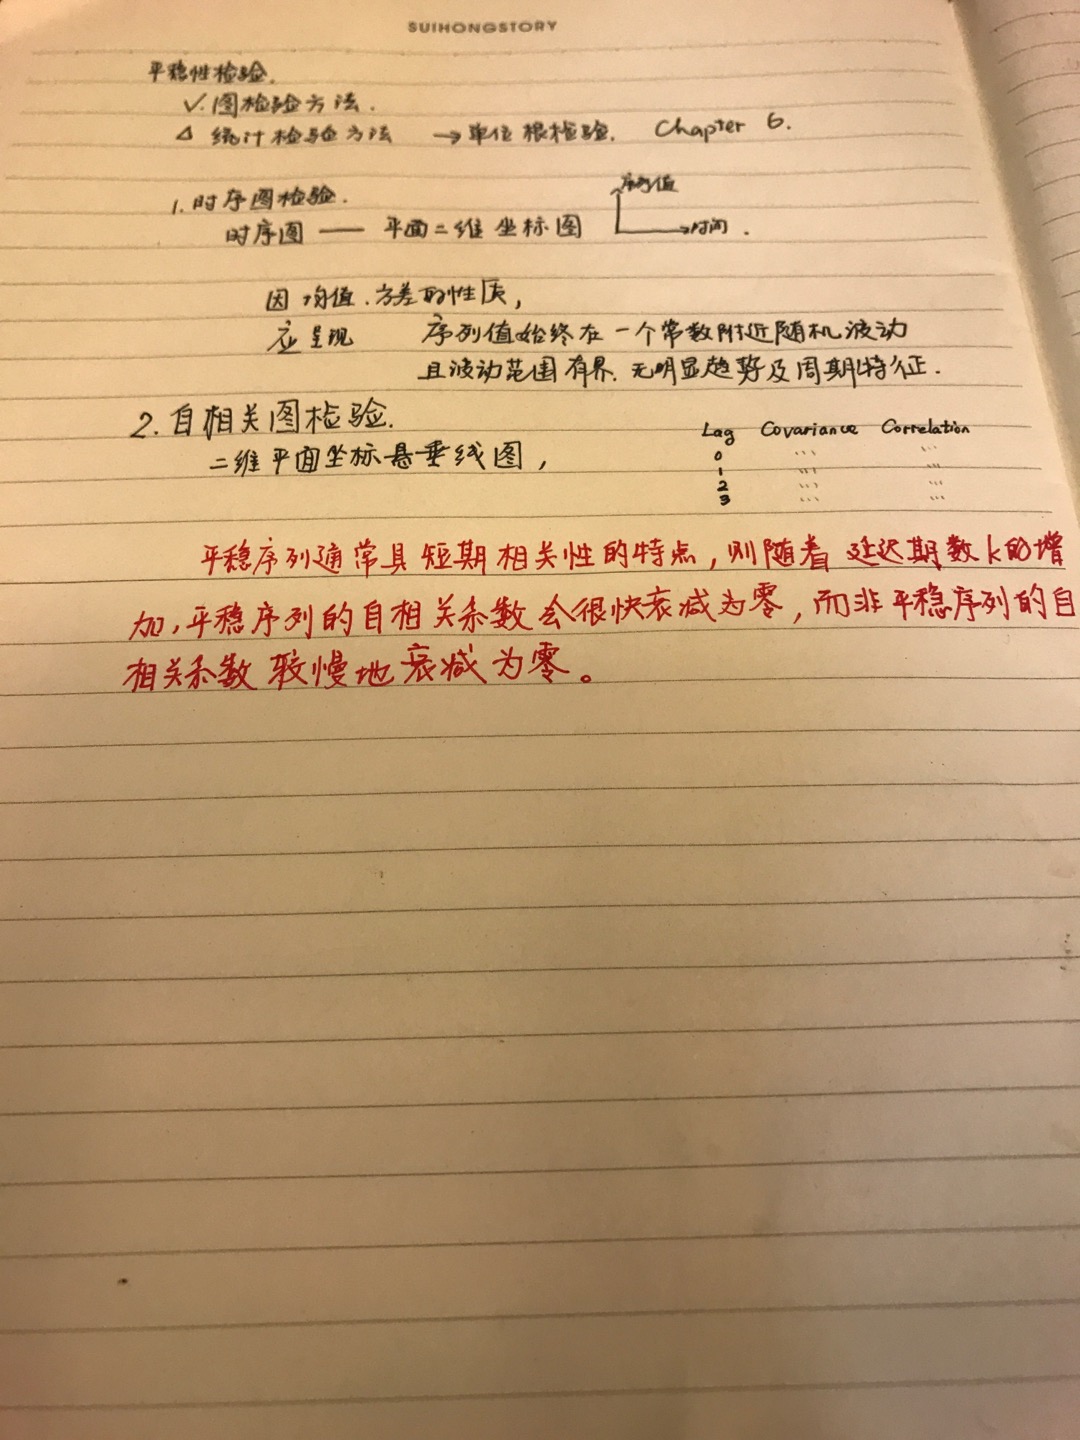 SUIHONGSTORY
平稳性检验.
✓. 图检验方法.
△ 统计检验方法 → 单位根检验. Chapter 6.
1. 时序图检验.
序列值
时序图 —— 平面二维坐标图 时间.
因均值.方差的性质,
应呈现 序列值始终在一个常数附近随机波动
且波动范围有界. 无明显趋势及周期特征.
2. 自相关图检验.
Lag Covariance Correlation
二维平面坐标悬垂线图,
0 ... ...
1 ... ...
2 ... ...
3 ... ...
平稳序列通常具短期相关性的特点,则随着延迟期数k的增
加,平稳序列的自相关系数会很快衰减为零,而非平稳序列的自
相关系数较慢地衰减为零。